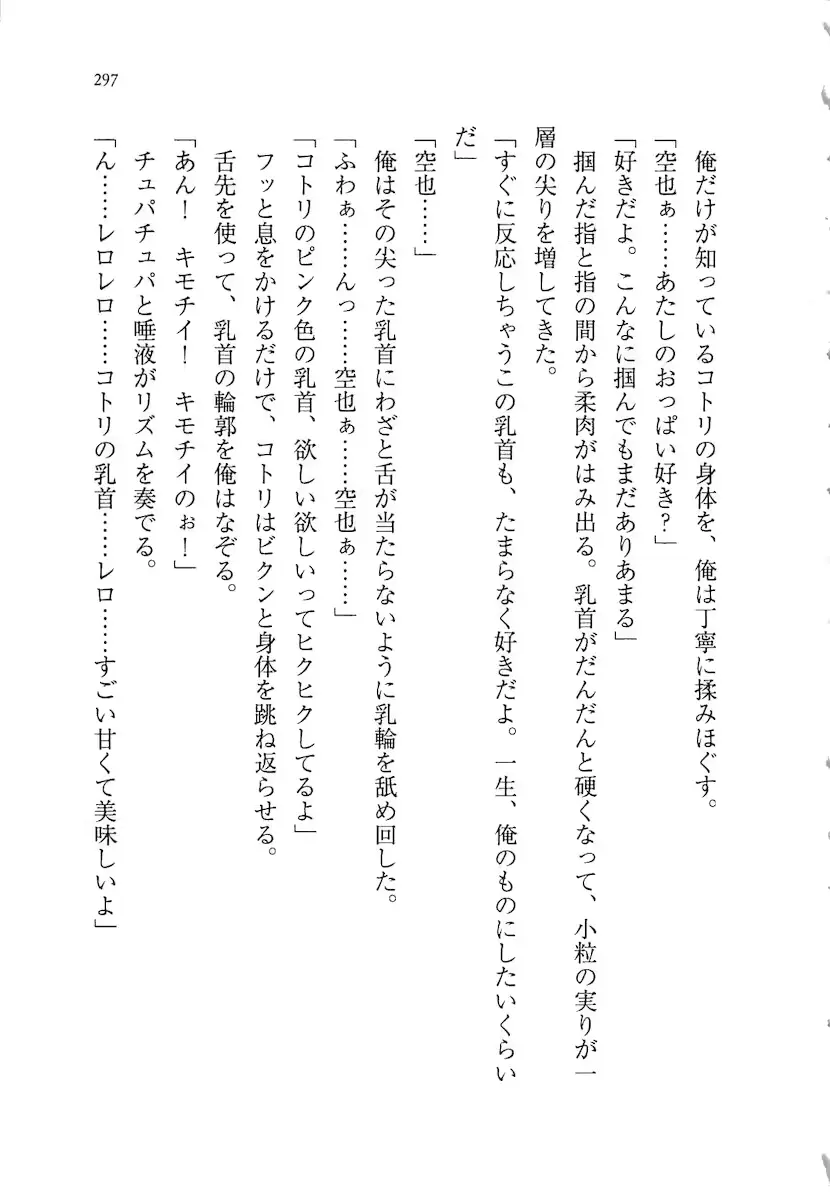 297
俺だけが知っているコトリの身体を、俺は丁寧に揉みほぐす。
「空也ぁ……あたしのおっぱい好き？」
「好きだよ。こんなに掴んでもまだありあまる」
掴んだ指と指の間から柔肉がはみ出る。乳首がだんだんと硬くなって、小粒の実りが一
層の尖りを増してきた。
「すぐに反応しちゃうこの乳首も、たまらなく好きだよ。一生、俺のものにしたいくらい
だ」
「空也……」
俺はその尖った乳首にわざと舌が当たらないように乳輪を舐め回した。
「ふわぁ……んっ……空也ぁ……空也ぁ……」
「コトリのピンク色の乳首、欲しい欲しいってヒクヒクしてるよ」
フッと息をかけるだけで、コトリはビクンと身体を跳ね返らせる。
舌先を使って、乳首の輪郭を俺はなぞる。
「あん！　キモチイ！　キモチイのぉ！」
チュパチュパと唾液がリズムを奏でる。
「ん……レロレロ……コトリの乳首……レロ……すごい甘くて美味しいよ」